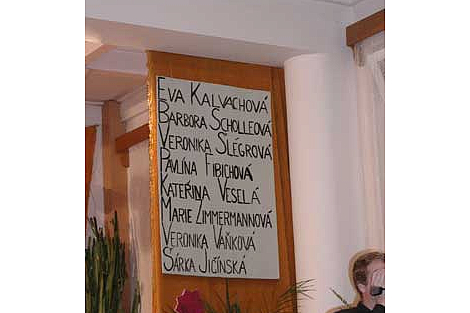 Eva Kalvachová
Barbora Scholleová
Veronika Šlégrová
Pavlína Fibichová
Kateřina Veselá
Marie Zimmermannová
Veronika Vaňková
Šárka Jičínská